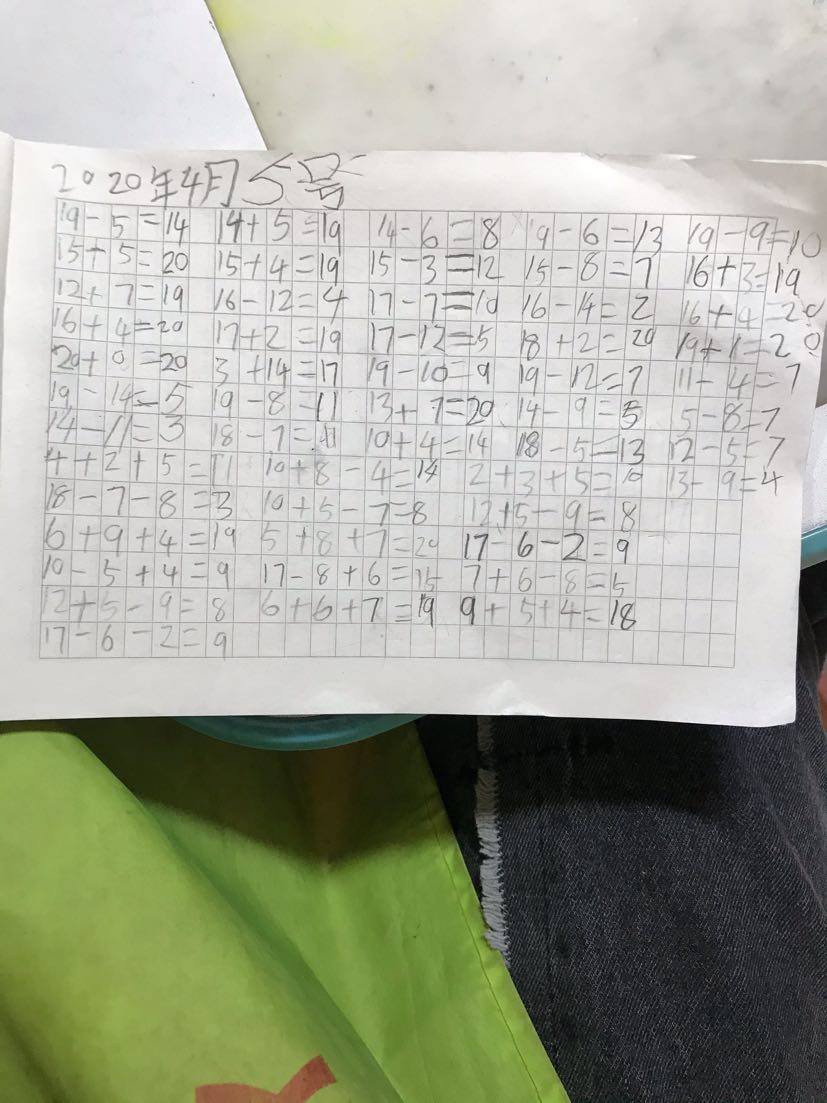 2020年4月5号
19-5=14 14+5=19 14-6=8 19-6=13 19-9=10
15+5=20 15+4=19 15-3=12 15-8=7 16+3=19
12+7=19 16-12=4 17-7=10 16-14=2 16+4=20
16+4=20 17+2=19 17-12=5 18+2=20 19+1=20
20+0=20 3+14=17 19-10=9 19-12=7 11-4=7
19-14=5 19-8=11 13+7=20 14-9=5 5-8=7
14-11=3 18-7=11 10+4=14 18-5=13 12-5=7
4+2+5=11 10+8-4=14 2+3+5=10 13-9=4
18-7-8=3 10+5-7=8 12+5-9=8
6+9+4=19 5+8+7=20 17-6-2=9
10-5+4=9 17-8+6=15 7+6-8=5
12+5-9=8 6+6+7=19 9+5+4=18
17-6-2=9